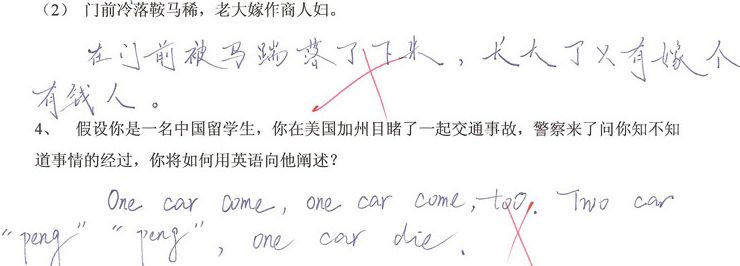 （2） 门前冷落鞍马稀，老大嫁作商人妇。
在门前被马踹落了下来，长大了只有嫁个
有钱人。
4、 假设你是一名中国留学生，你在美国加州目睹了一起交通事故，警察来了问你知不知
道事情的经过，你将如何用英语向他阐述？
One car come, one car come, too. Two car
"peng" "peng", one car die.